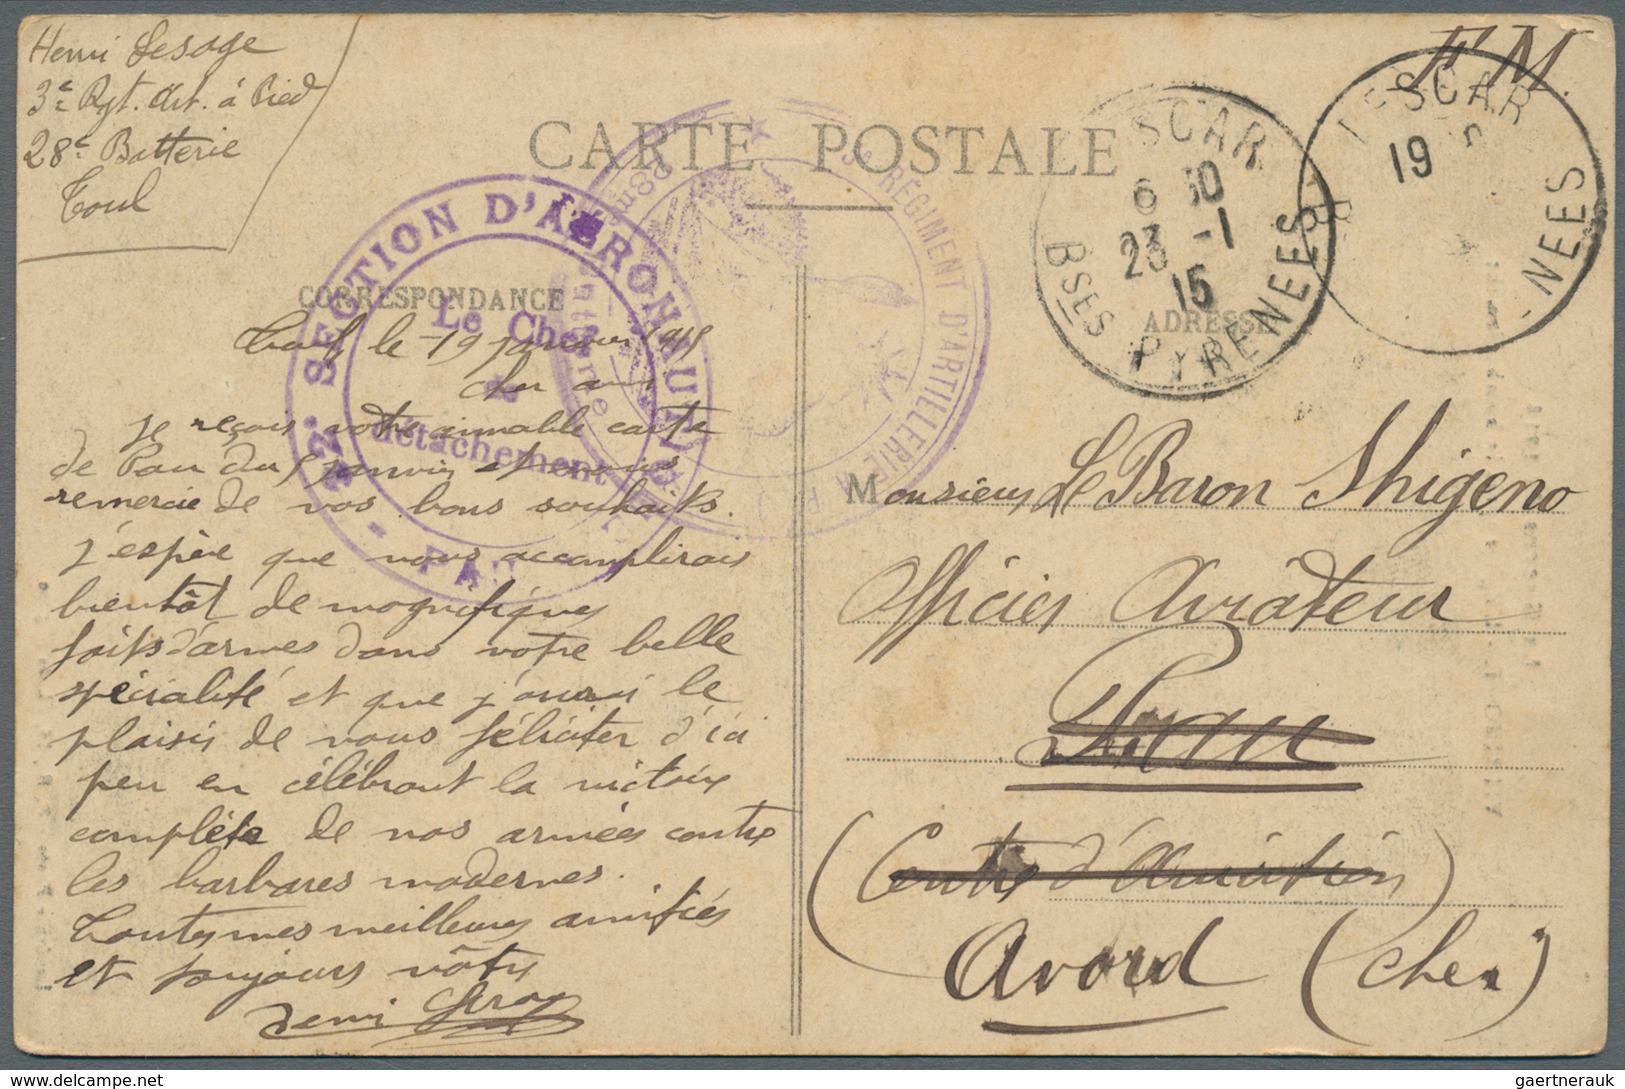 Henri Lesage
3e Rgt. Art. à Pied
28e Batterie
Toul
F M.
CARTE POSTALE
CORRESPONDANCE
ADRESSE
SECTION D'AÉRONAU
Le Chef
détachement
PAU
RÉGIMENT D'ARTILLERIE À P
28me
LESCAR
6 30
23 -1
15
BSES PYRENEES
LESCAR
19
B NEES
Toul, le 19 janvier 1915
Cher ami
Je reçois votre aimable carte
de Pau du 5 janvier et vous
remercie de vos bons souhaits.
J'espère que vous accomplirais
bientôt de magnifiques
faits d'armes dans votre belle
spécialité et que j'aurai le
plaisir de vous féliciter d'ici
peu en célébrant la victoire
complète de nos armées contre
les barbares modernes.
Toutes mes meilleures amitiés
et toujours vôtre
Henri Lesage
Monsieur Le Baron Shigeno
Officier Aviateur
Pau
(Centre d'Aviation)
Avord (Cher)
gaertnerauk / delcampe.net